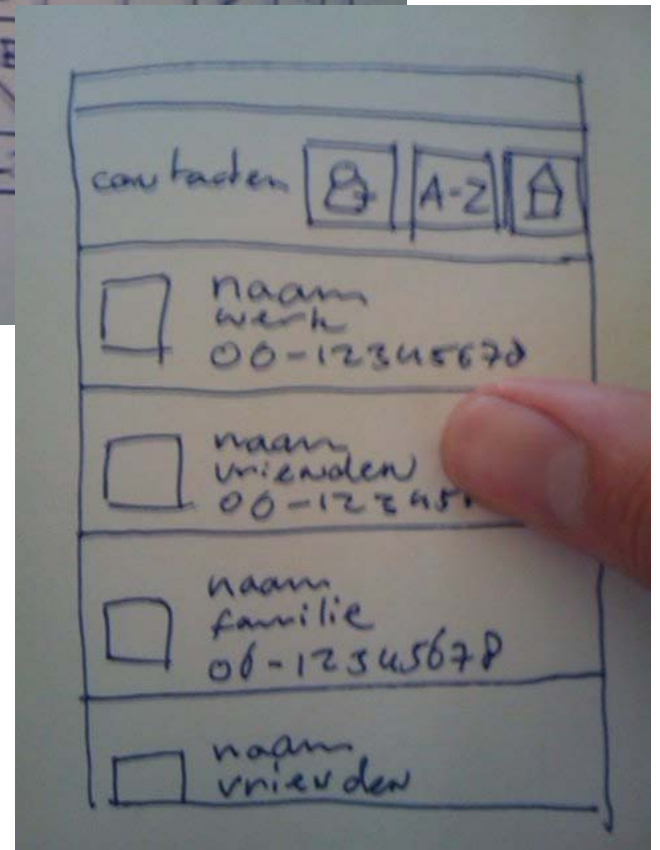 contacten A-Z
naam
werk
06-12345678
naam
vrienden
06-12345
naam
familie
06-12345678
naam
vrienden